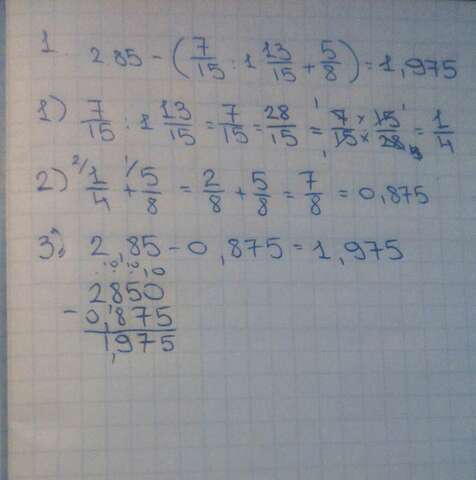 1 2 85 - (7/15 : 1 13/15 + 5/8) = 1,975
1) 7/15 : 1 13/15 = 7/15 = 28/15 = 7 × 15 / 15 × 28 = 1/4
2) 1/4 + 5/8 = 2/8 + 5/8 = 7/8 = 0,875
3) 2,85 - 0,875 = 1,975
2850
- 0,875
1,975